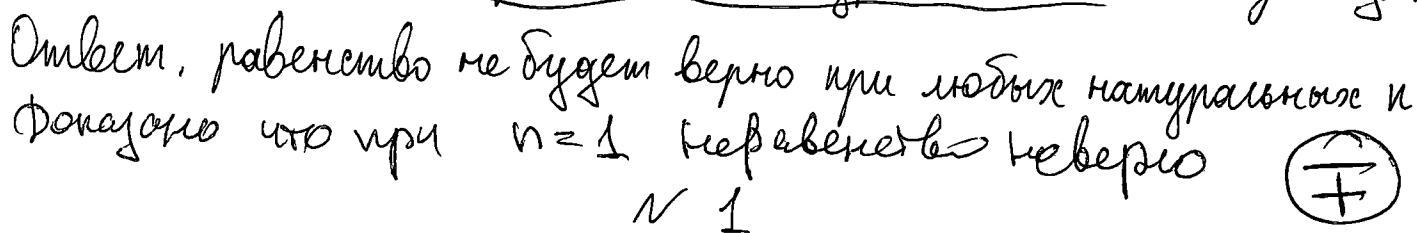 Ответ, равенство не будет верно при любых натуральных n
Доказано что при n=1 неравенство неверно ∓
N 1